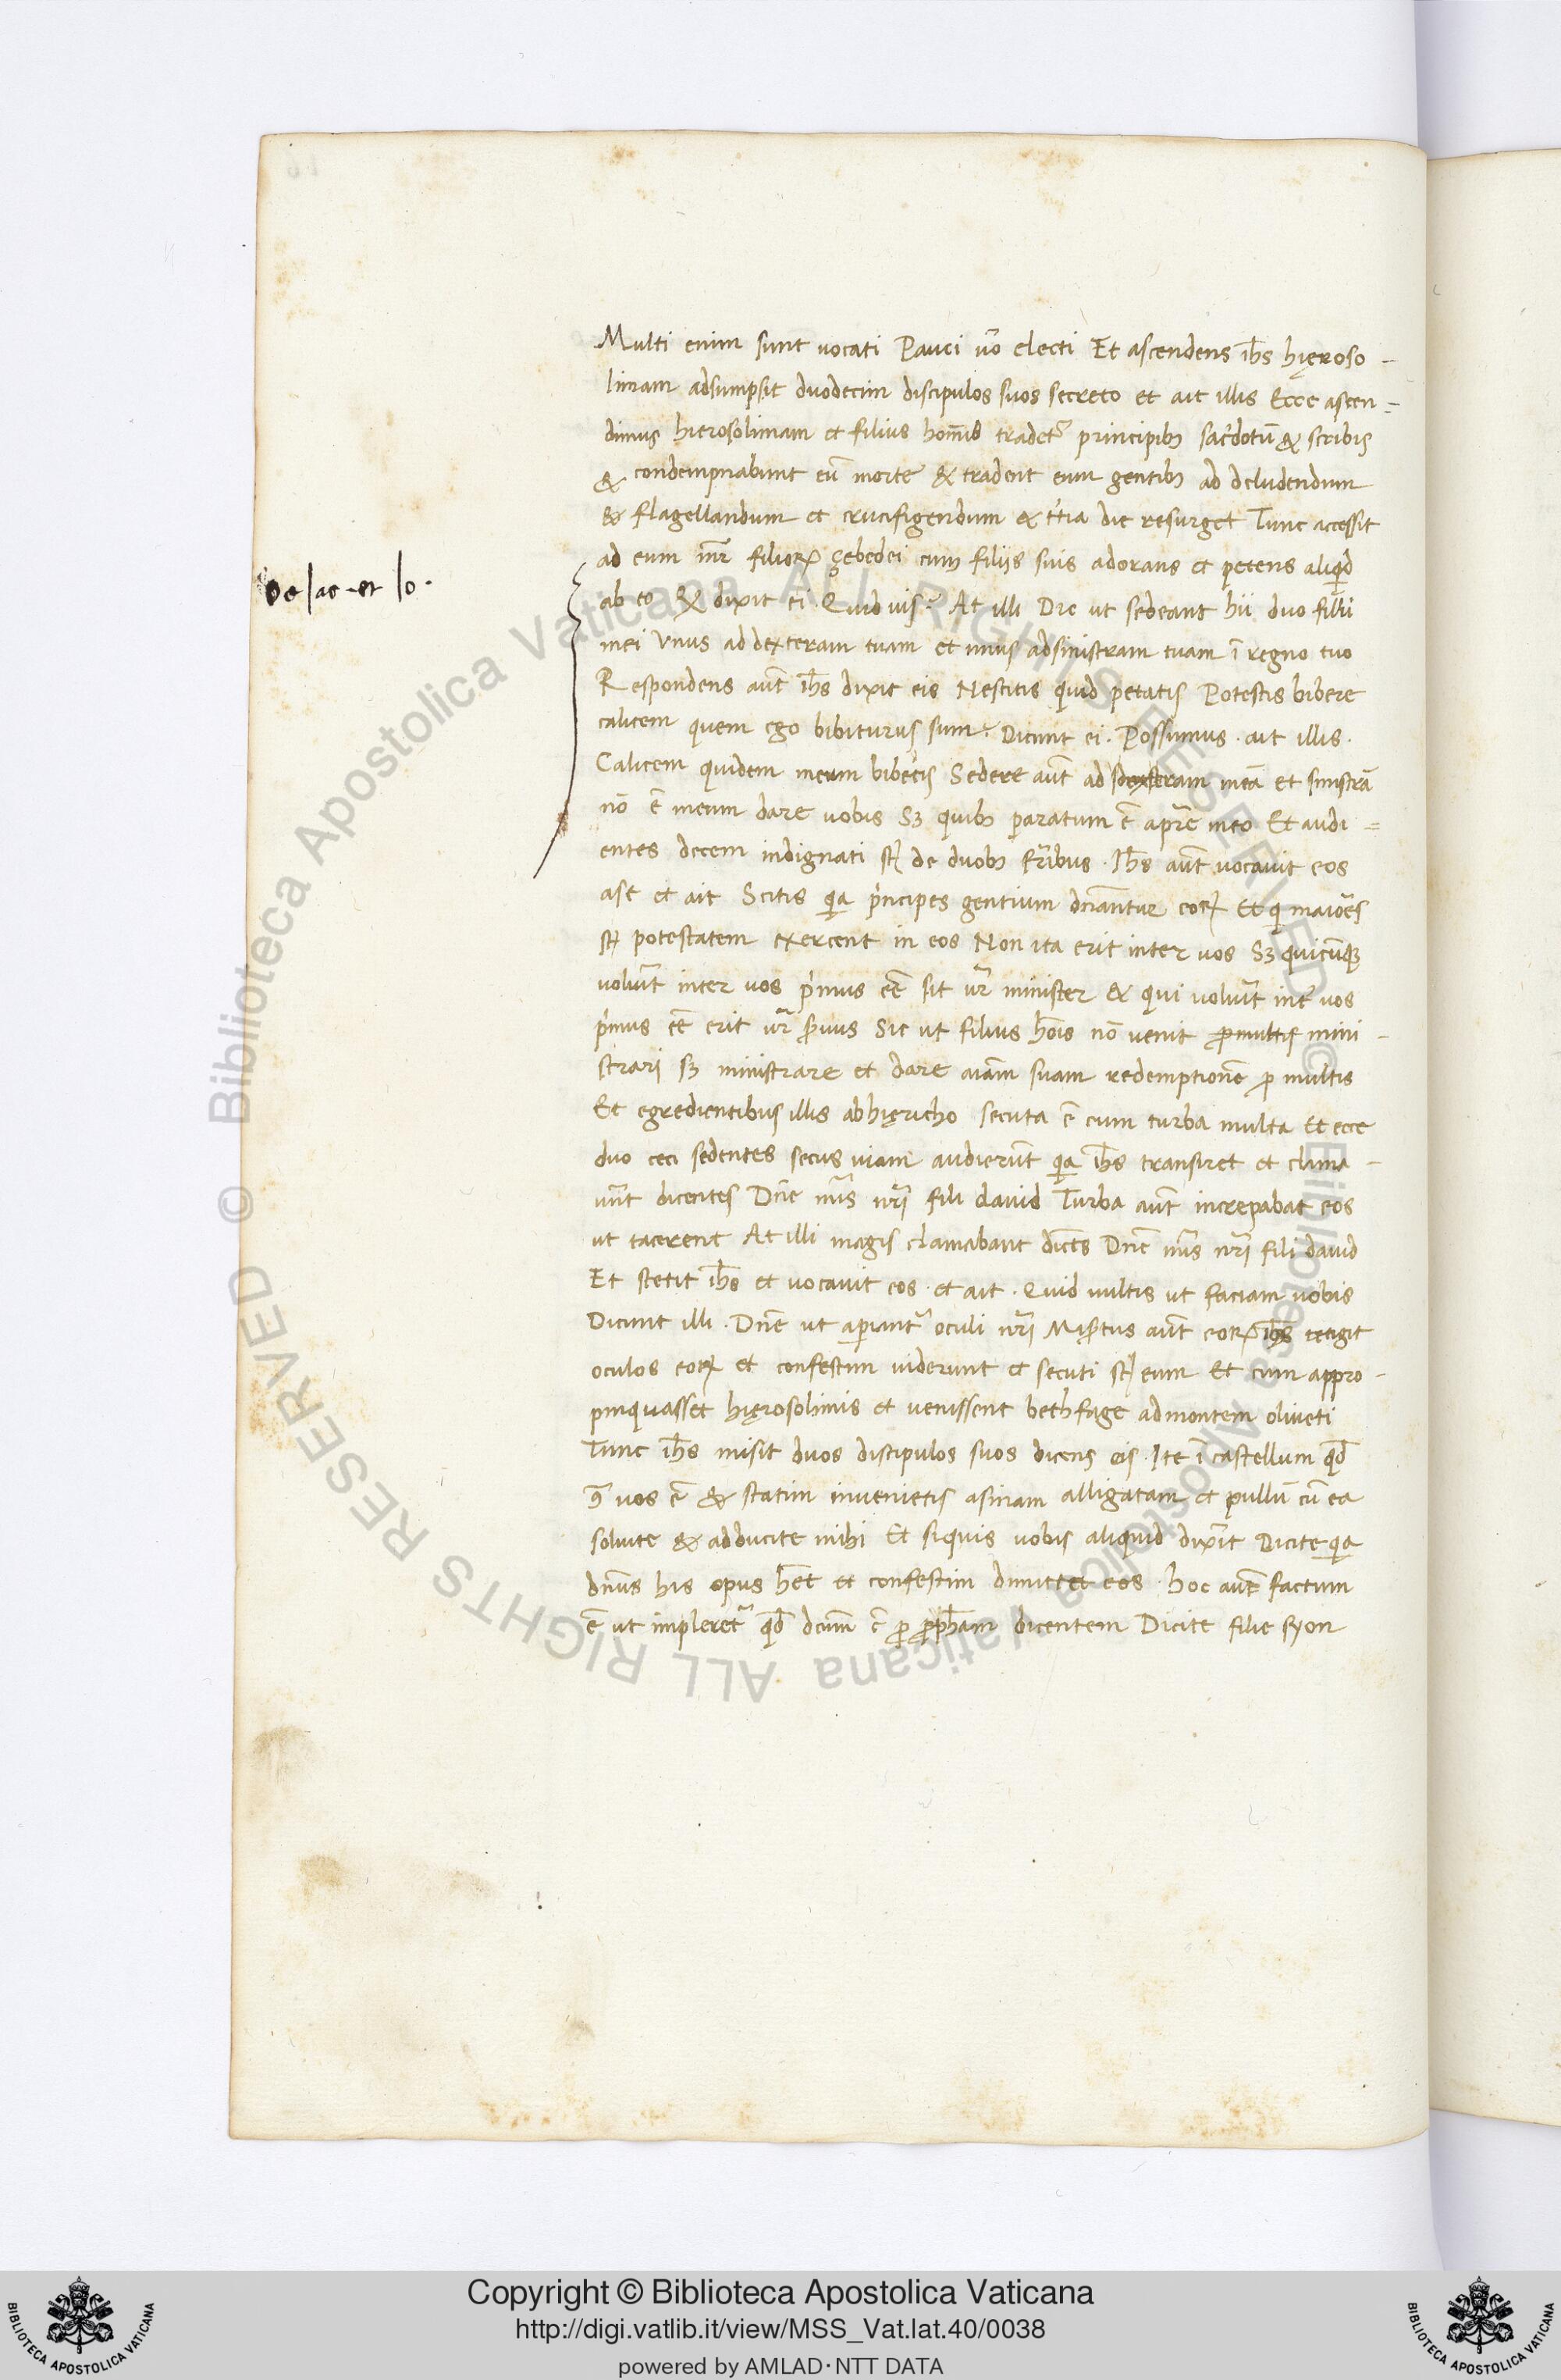 Multi enim sunt uocati Pauci uō electi Et ascendens ihs hięroso-
limam adsumpsit duodecim discipulos suos secreto et ait illis Ecce ascen=
dimus hierosolimam et filius homīs tradet᷑ principibꝫ sac̓dotū & scribis
& condempnabunt eū morte & tradent eum gentibꝫ ad deludendum
& flagellandum et crucifigendum & t̓tia die resurget Tunc accessit
ad eum mr̄ filioꝝ zebedei cum filijs suis adorans et petens aliqd
De Iac. et Io.
ab eo & dixit ei. Quid uis? At illi Dic ut sedeant hii duo filii
mei Vnus ad dexteram tuam et unus ad sinistram tuam ī regno tuo
Respondens aut̄ ihs̄ dixit eis Nescitis quid petatis Potestis bibere
calicem quem ego bibiturus sum? Dicunt ei. Possumus. ait illis.
Calicem quidem meum bibetis Sedere aut̄ ad dexteram meā et sinistrā
nō ē meum dare uobis Sꝫ quibꝫ paratum ē apr̄e meo Et audi=
entes decem indignati st̄ de duobꝫ fr̄ibus. Ihs̄ aut̄ uocauit eos
ase et ait Scitis qa pͥncipes gentium dn̄antur eoꝝ Et qͥ maiōes
st̄ potestatem exercent in eos Non ita erit inter uos Sꝫ quicūqꝫ
voluīt inter uos pͥmus eē sit ur̄ minister & qui voluīt int̓ uos
pͥmus eē erit ur̄ s̓uus Sic ut filius hōis nō uenit ꝓ multis mini-
strari sꝫ ministrare et dare aīam suam redemptionē ꝓ multis
Et egredientibus illis ab hięricho secuta ē eum turba multa Et ecce
duo ceci sedentes secus uiam audierūt qa ihs̄ transiret et clama-
unt̄ dicentes Dn̄e mis̄ nr̄i fili dauid Turba aut̄ increpabat eos
ut tacerent At illi magis clamabant dictēs Dn̄e mis̄ nr̄i fili dauid
Et stetit ihs̄ et uocauit eos. et ait. Quid uultis ut faciam uobis
Dicunt illi. Dn̄e ut aꝑiant᷑ oculi nr̄i Mis̓tus aut̄ eoꝝ ihs̄ tetigit
oculos eoꝝ et confestim uiderunt et secuti st̄ eum Et cum appro-
pinquasset hięrosolimis et uenissent bethfage ad montem oliueti
Tunc ihs̄ misit duos discipulos suos dicens eis. Ite ī castellum qd̄
ꝯ̄ uos ē & statim inuenietis asinam alligatam et pullū cū ea
soluite & adducite mihi Et siquis uobis aliquid dixīt Dicite qa
dn̄us his opus h̄et et confestim dimittet eos. hoc autē factum
ē ut impleret᷑ qd̄ dcūm ē ꝑ ꝓph̄am dicentem Dicite filie syon
© Biblioteca Apostolica Vaticana ALL RIGHTS RESERVED
© Biblioteca Apostolica Vaticana ALL RIGHTS RESERVED
Copyright © Biblioteca Apostolica Vaticana
http://digi.vatlib.it/view/MSS_Vat.lat.40/0038
powered by AMLAD·NTT DATA
BIBLIOTECA APOSTOLICA VATICANA
BIBLIOTECA APOSTOLICA VATICANA